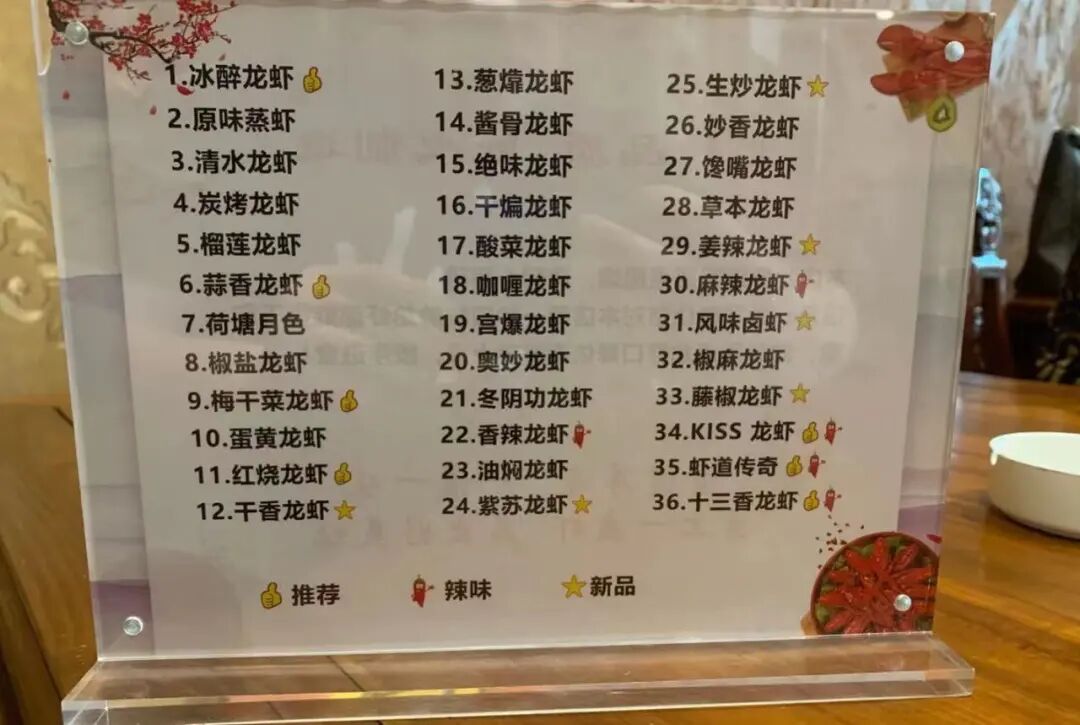 1.冰醉龙虾
2.原味蒸虾
3.清水龙虾
4.炭烤龙虾
5.榴莲龙虾
6.蒜香龙虾
7.荷塘月色
8.椒盐龙虾
9.梅干菜龙虾
10.蛋黄龙虾
11.红烧龙虾
12.干香龙虾
13.葱㸆龙虾
14.酱骨龙虾
15.绝味龙虾
16.干煸龙虾
17.酸菜龙虾
18.咖喱龙虾
19.宫爆龙虾
20.奥妙龙虾
21.冬阴功龙虾
22.香辣龙虾
23.油焖龙虾
24.紫苏龙虾
25.生炒龙虾
26.妙香龙虾
27.馋嘴龙虾
28.草本龙虾
29.姜辣龙虾
30.麻辣龙虾
31.风味卤虾
32.椒麻龙虾
33.藤椒龙虾
34.KISS 龙虾
35.虾道传奇
36.十三香龙虾
推荐 辣味 新品